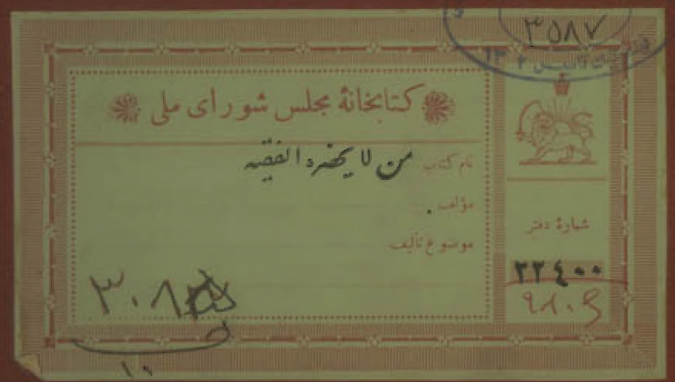 ۳۵۸۷
كتابخانهٔ مجلس شورای ملی
نام كتاب من لا یحضره الفقیه
مؤلف
موضوع تألیف
شمارهٔ دفتر
۲۲۴۰۰
۳۰۸
۱۰